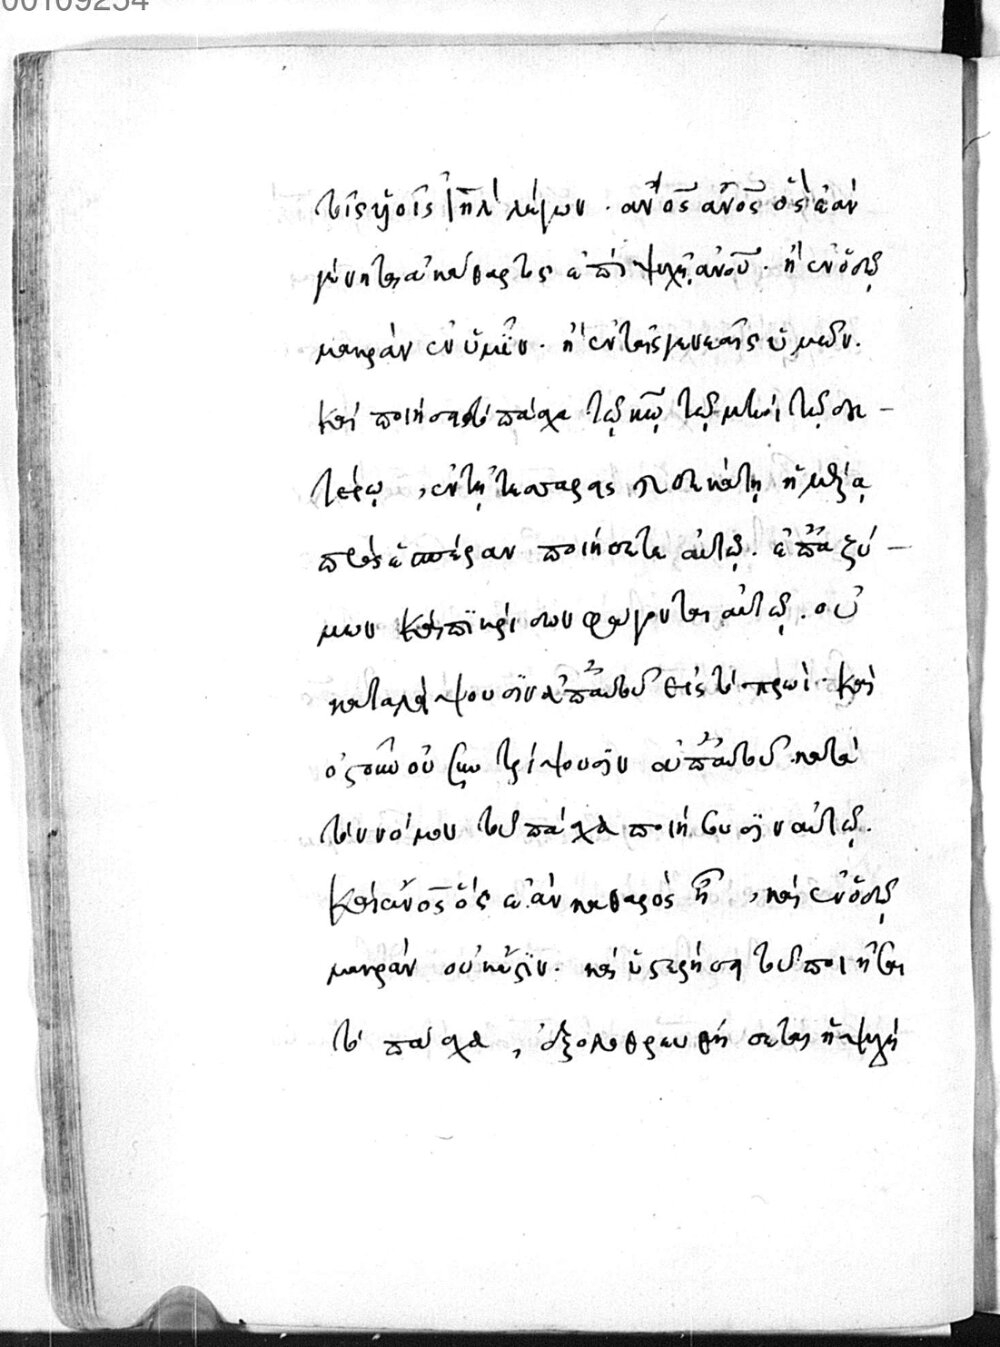 00109254
τοῖς υἱοῖς ιη̅λ λέγων · αν̅ος αν̅ος ὃς ἐὰν
γένηται ἀκάθαρτος ἐπὶ ψυχῇ αν̅ου · ἢ ἐν ὁδῷ
μακρὰν ἐν ὑμῖν · ἢ ἐν ταῖς γενεαῖς ὑμῶν ·
καὶ ποιήσῃ τὸ πάσχα τῷ κω̅ τῷ μηνὶ τῷ δευ –
τέρῳ , ἐν τῇ τεσσαρεσκαιδεκάτῃ ἡμέρᾳ
πρὸς ἑσπέραν ποιήσετε αὐτῷ · ἐπ' ἀζύ –
μων καὶ πικρίδων φάγονται αὐτῷ · οὐ
καταλείψουσιν ἀπ' αὐτοῦ εἰς τὸ πρωὶ · καὶ
ὀστοῦν οὐ συντρίψουσιν ἀπ' αὐτοῦ · κατὰ
τὸν νόμον τοῦ πάσχα ποιήσουσιν αὐτῷ ·
καὶ αν̅ος ὃς ἐὰν καθαρὸς ᾖ , καὶ ἐν ὁδῷ
μακρὰν οὐκ ἔστιν · καὶ ὑστερήσῃ τοῦ ποιῆσαι
τὸ πάσχα , ἐξολοθρευθήσεται ἡ ψυχὴ